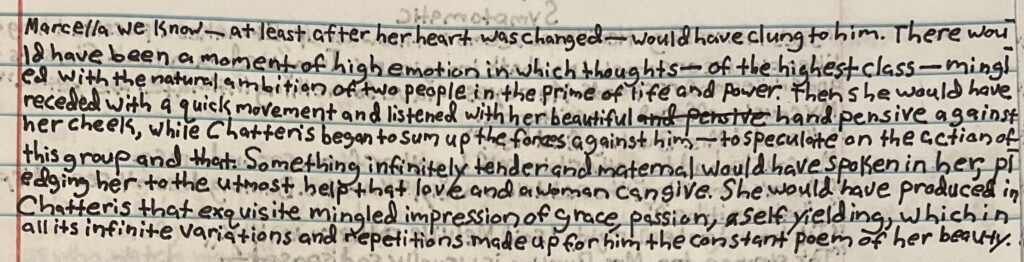 Marcella we know — at least after her heart was changed — would have clung to him. There wou-
ld have been a moment of high emotion in which thoughts — of the highest class — mingl
ed with the natural ambition of two people in the prime of life and power. Then she would have
receded with a quick movement and listened with her beautiful and pensive hand pensive against
her cheek, while Chatteris began to sum up the forces against him — to speculate on the action of
this group and that. Something infinitely tender and maternal would have spoken in her, pl
edging her to the utmost help that love and a woman can give. She would have produced in
Chatteris that exquisite mingled impression of grace, passion, a self yielding, which in
all its infinite variations and repetitions made up for him the constant poem of her beauty.